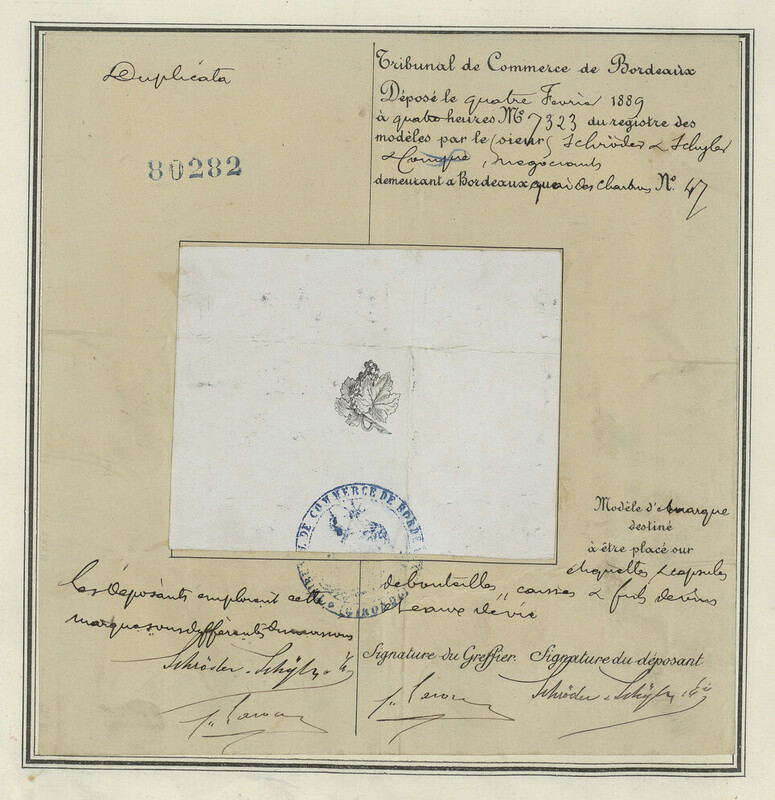 Duplicata
80282
Tribunal de Commerce de Bordeaux
Déposé le quatre Fevrier 1889
à quatre heures No 7323 du registre des
modèles par le sieur Schröder & Schyler
& Compie, négociants
demeurant à Bordeaux quai des Chartrons No. 47
Modèle d'marque
destiné
à être placé sur
étiquettes & capsules
de bouteilles, caisses & futs de vins
& eaux de vie
AL DE COMMERCE DE BORDE
(GIRONDE)
Les déposants emploient cette
marque sous différentes dimensions
Schröder & Schÿler & Cie
Signature du Greffier. Signature du déposant
Schröder & Schÿler & Cie